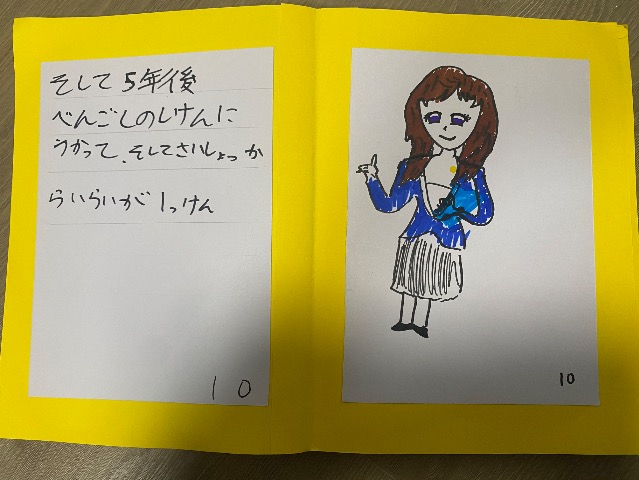 そして5年後
べんごしのしけんに
うかって、そしてさいしょっか
らいらいが1っけん
10
10